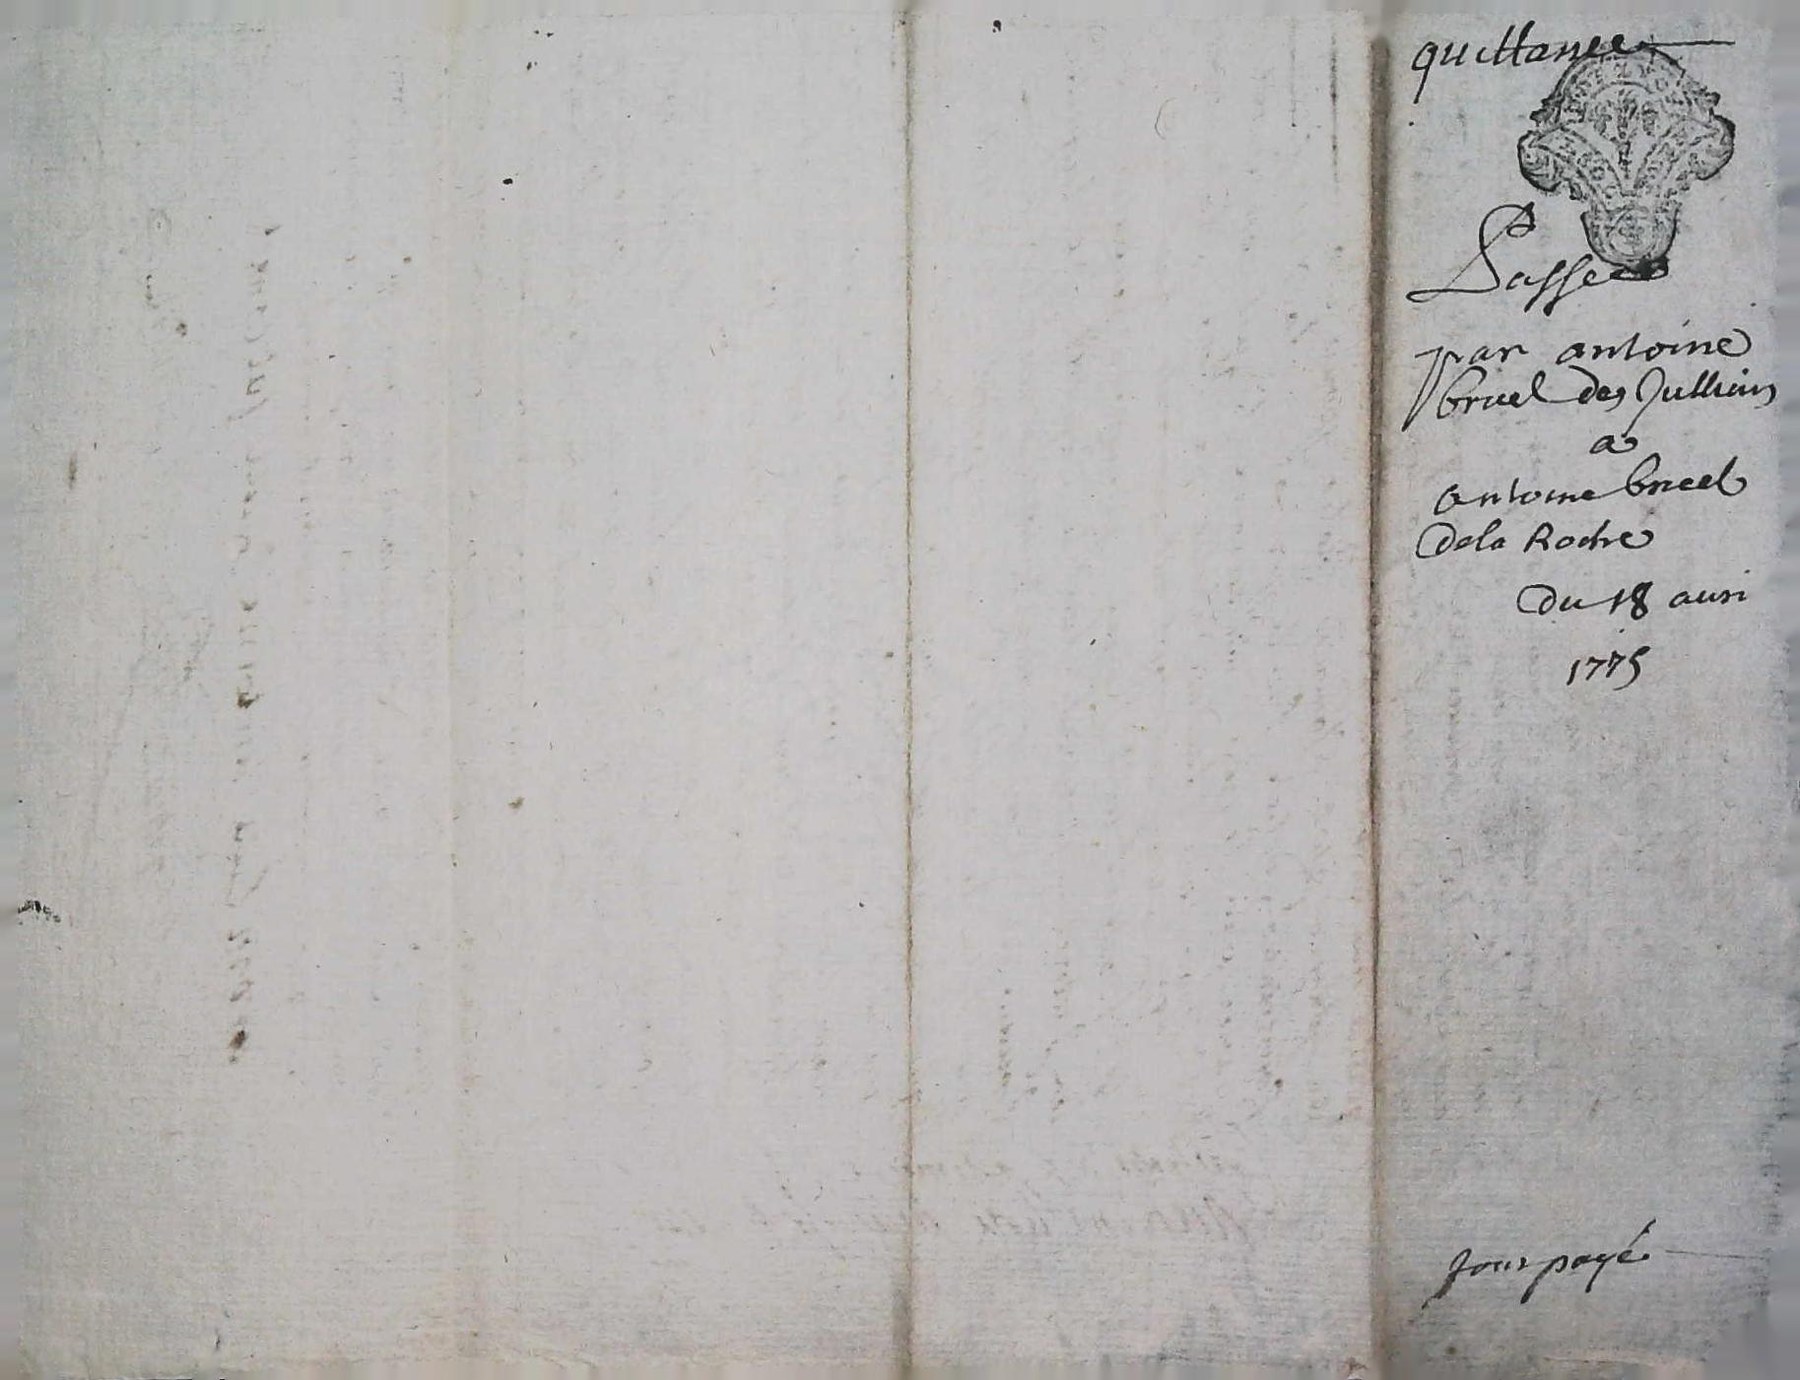 quittance
Passee
par antoine
bruel des Jullien
a
antoine brueel
dela Roche
Du 18 auri
1775
tout payé